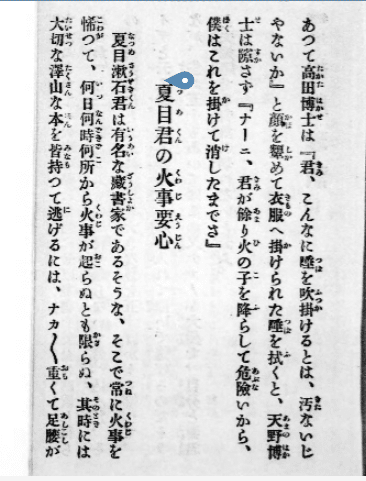 あつて高田博士は『君、こんなに唾を吹掛けるとは、汚ないじ
やないか』と顔を顰めて衣服へ掛けられた唾を拭くと、天野博
士は隙さず『ナーニ、君が餘り火の子を降らして危險いから、
僕はこれを掛けて消したまでさ』
夏目君の火事要心
夏目漱石君は有名な藏書家であるそうな、そこで常に火事を
怖つて、何日何時何所から火事が起らぬとも限らぬ、其時には
大切な澤山な本を皆持つて逃げるには、ナカ〳〵重くて足腰が